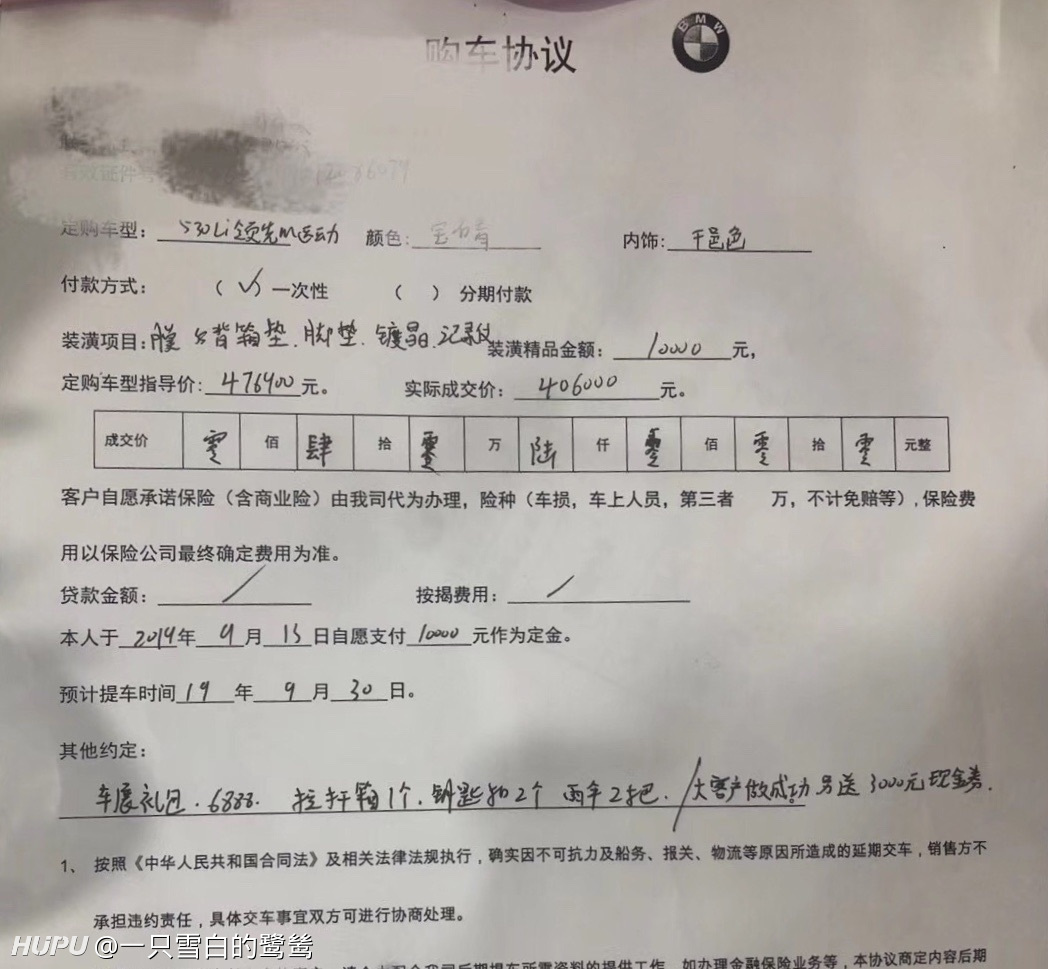 BMW
购车协议
定购车型：530Li领先M运动 颜色：宝石青 内饰：干邑色
付款方式： （√）一次性 （ ）分期付款
装潢项目：膜 后背箱垫、脚垫、镀晶、记录仪 装潢精品金额：10000元，
定购车型指导价：476900元。 实际成交价：406000元。
成交价 零 佰 肆 拾 零 万 陆 仟 零 佰 零 拾 零 元整
客户自愿承诺保险（含商业险）由我司代为办理，险种（车损，车上人员，第三者 万，不计免赔等），保险费
用以保险公司最终确定费用为准。
贷款金额： / 按揭费用： /
本人于2019年9月15日自愿支付10000元作为定金。
预计提车时间19年9月30日。
其他约定：
车展礼包、6888、拉杆箱1个、钥匙扣2个 雨伞2把、/大客户做成功另送3000元现金券.
1、按照《中华人民共和国合同法》及相关法律法规执行，确实因不可抗力及船务、报关、物流等原因所造成的延期交车，销售方不
承担违约责任，具体交车事宜双方可进行协商处理。
司后期提车所需资料的提供工作，如办理金融保险业务等，本协议商定内容后期
HUPU @一只雪白的鹭鸶